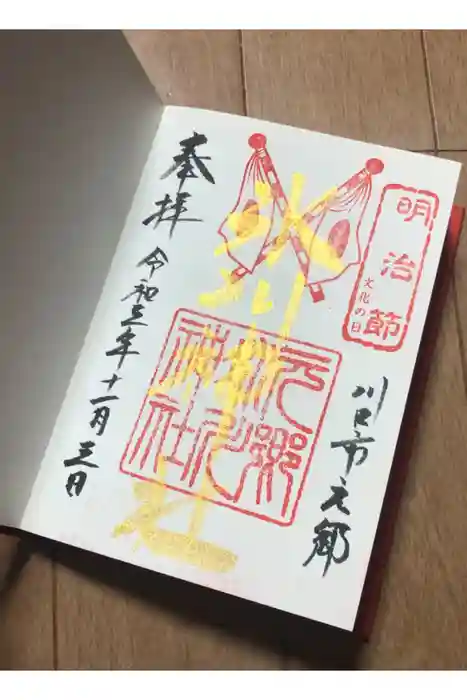 明治節
文化の日
川口市元郷
氷川神社
元郷氷川神社
奉拝
令和三年十一月三日